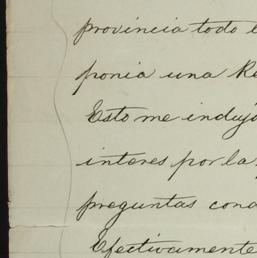 provincia todo
ponia una Re
Esto me indujo
interes por la
preguntas cona
Efectivamente